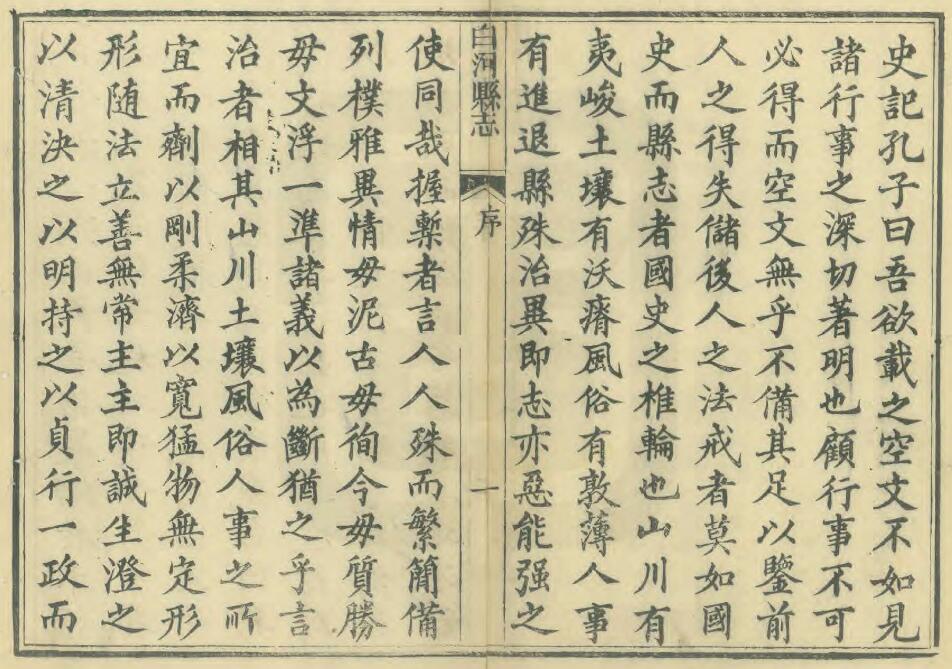 史記孔子曰吾欲載之空文不如見
諸行事之深切著明也顧行事不可
必得而空文無乎不備其足以鑒前
人之得失儲後人之法戒者莫如國
史而縣志者國史之椎輪也山川有
夷峻土壤有沃瘠風俗有敦薄人事
有進退縣殊治異即志亦惡能强之
白河縣志
序
一
使同哉握槧者言人人殊而繁簡備
列樸雅異情毋泥古毋徇今毋質勝
毋文浮一準諸義以為斷猶之乎言
治者相其山川土壤風俗人事之所
宜而劑以剛柔濟以寬猛物無定形
形随法立善無常主主即誠生澄之
以清決之以明持之以貞行一政而